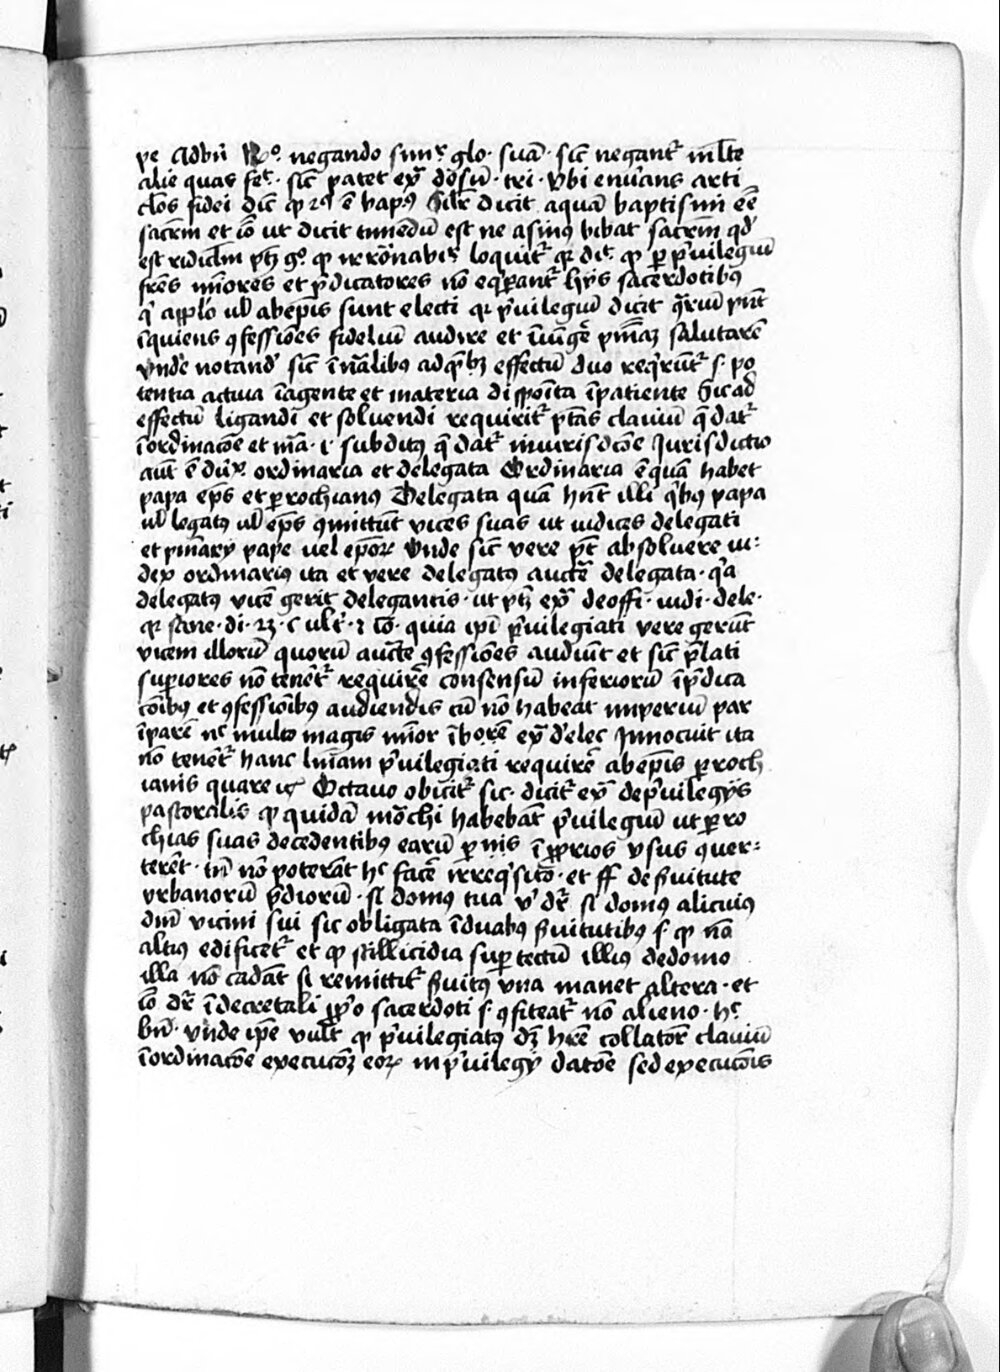 pe Advn̄ Rº. negando sun̄t glo. suā. sic̄ negant̄ ml̄te
alie quas fec̄. sic̄ patet ex̄ de su. tri. vbi enūans arti
clos fidei dic̄ dicit aquā baptismi eē
sacrm̄ et iō ut dicit timēdū est ne asinus bibat sacrm̄ qd̄
est ridiclm̄ ptꝫ gº. qͥ irrōnabir̄ loquit̄ qr̄ dit̄. qꝫ ꝑ pͥuilegiū
frēs miōres et p̄dicatores nō eqꝑant̄ hijs sacerdotibꝰ
qͥ appl̄o ul̄ ab ep̄is sunt electi qr̄ pͥuilegiū dicit
inquiens ꝯfessiōes fideliū audire et īiūgē pn̄iaꝫ salutarē
vnde notand̄ sic̄ ī nāalibꝰ ad qͣꝫ effectū duo reqͥrūt̄ s. po
tentia actiua ī agente et materia disposita ī patiente Sic ad
effectū ligandi et soluendi requirit̄ ptās clauiū q̄ dat̄
ī ordinacōe et mā. i. subditꝰ q̄ dat̄ in iurisdicōe Iurisdictio
aut̄ ē dux̄. ordinaria et delegata Ordinaria ē quā habet
papa ep̄s et ꝑrochianꝰ Delegata quā hn̄t illi qͥbꝰ papa
ul̄ legatꝰ ul̄ ep̄s ꝯmittunt vices suas ut iudices delegati
et pn̄iarij pape uel ep̄oꝝ Vnde sic̄ vere pt̄ absoluere iu-
dex ordinariꝰ ita et vere delegatꝰ auctē delegata. qͥa
delegatꝰ vicē gerit delegantis. ut ptꝫ ex̄ de offi. iudi. dele.
qr̄ sane. di. c ult̄. ⁊ iō. quia ip̄i pͥuilegiati vere gerūt
vicem illorū quorū auctē ꝯfessiōes audiūt et sic̄ p̄lati
suꝑiores nō tenēt̄ requirē consensū inferiorū ī p̄dica
cōibꝰ et ꝯfessiōibꝰ audiendis cū nō habeat imperiū par
ī parē nc̄ multo magis miōr ī maiorē ex̄ de elec Innocuit ita
nō tenēt̄ hanc lnīam pͥuilegiati requirē ab ep̄is ꝑroch
ianis quare ꝛc̄ Octauo obicit̄ sic. dicit̄ ex̄ de pͥuilegijs
pastoralis qꝫ quidā mōchi habebāt pͥuilegiū ut ꝑro
chias suas decedentibꝰ earū ꝑ nis ī ꝓprios vsus ꝯuer-
terēt. tn̄ nō poterāt hc̄ facē irreqͥsito. et ff de ẜuitute
vrbanorū p̄diorū. si domus tua vͥ dr̄ si domꝰ alicuiꝰ
dnī vicini sui sic obligata ī duabꝰ ẜuitutibꝰ s. qꝫ nō
altiꝰ edificet̄ et qꝫ stillicidia suꝑ tectū illiꝰ de domo
illa nō cadāt si remittit̄ ẜuitꝰ vna manet altera. et
iō dr̄ ī decretali ꝓpͥo sacerdoti s. ꝯfiteat̄ nō alieno. hc̄
bn̄. vnde ip̄e vult qꝫ pͥuilegiatꝰ dꝫ hr̄e collatōr̄ clauiū
ī ordinacōe execucōꝫ eoꝝ in pͥuilegij datōe sed execucōis